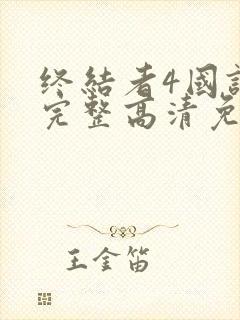 终结者4國
完整高清免
王金笛